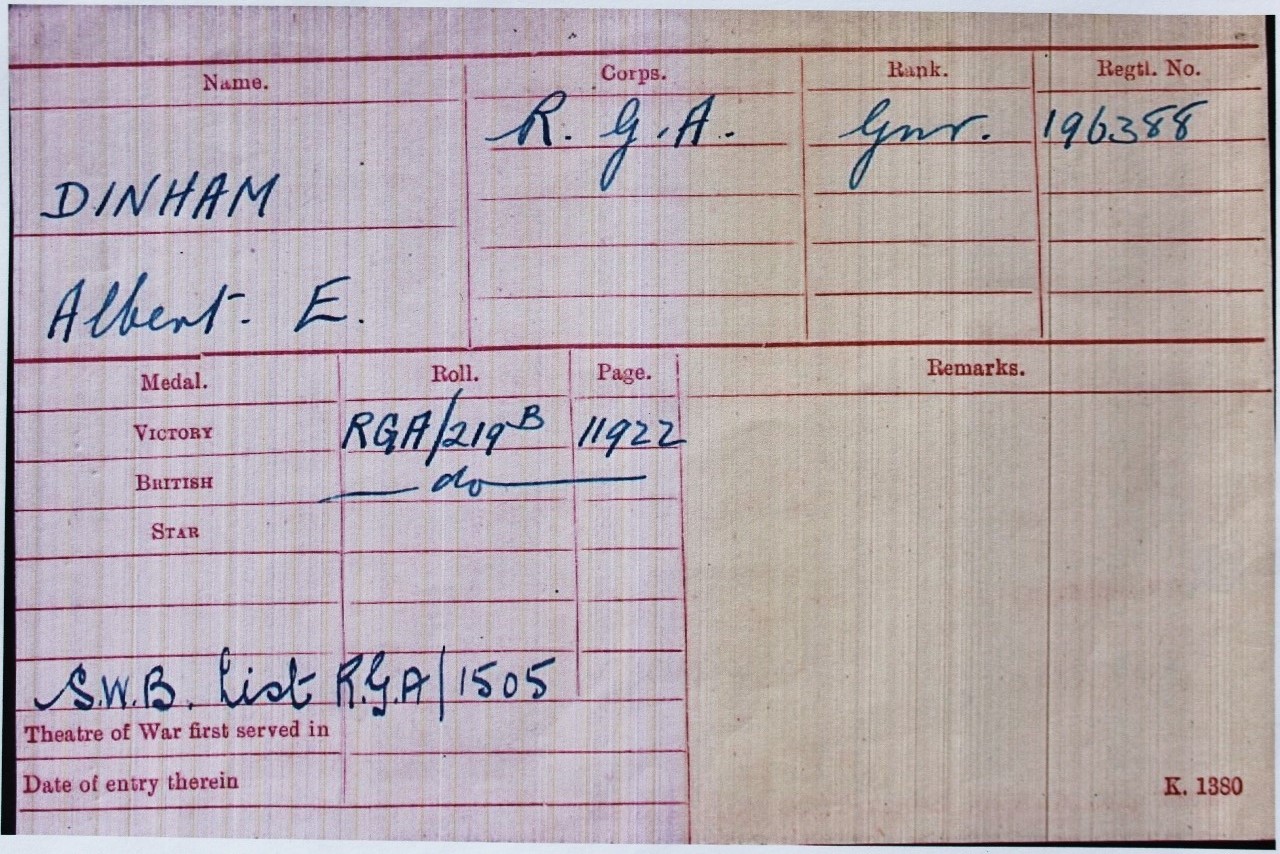 Name. Corps. Rank. Regtl. No.
R. G. A. Gnr. 196388
DINHAM
Albert. E.
Medal. Roll. Page. Remarks.
VICTORY RGA/219 B 11922
BRITISH do
STAR
S.W.B. List R.G.A/1505
Theatre of War first served in
Date of entry therein
K. 1380